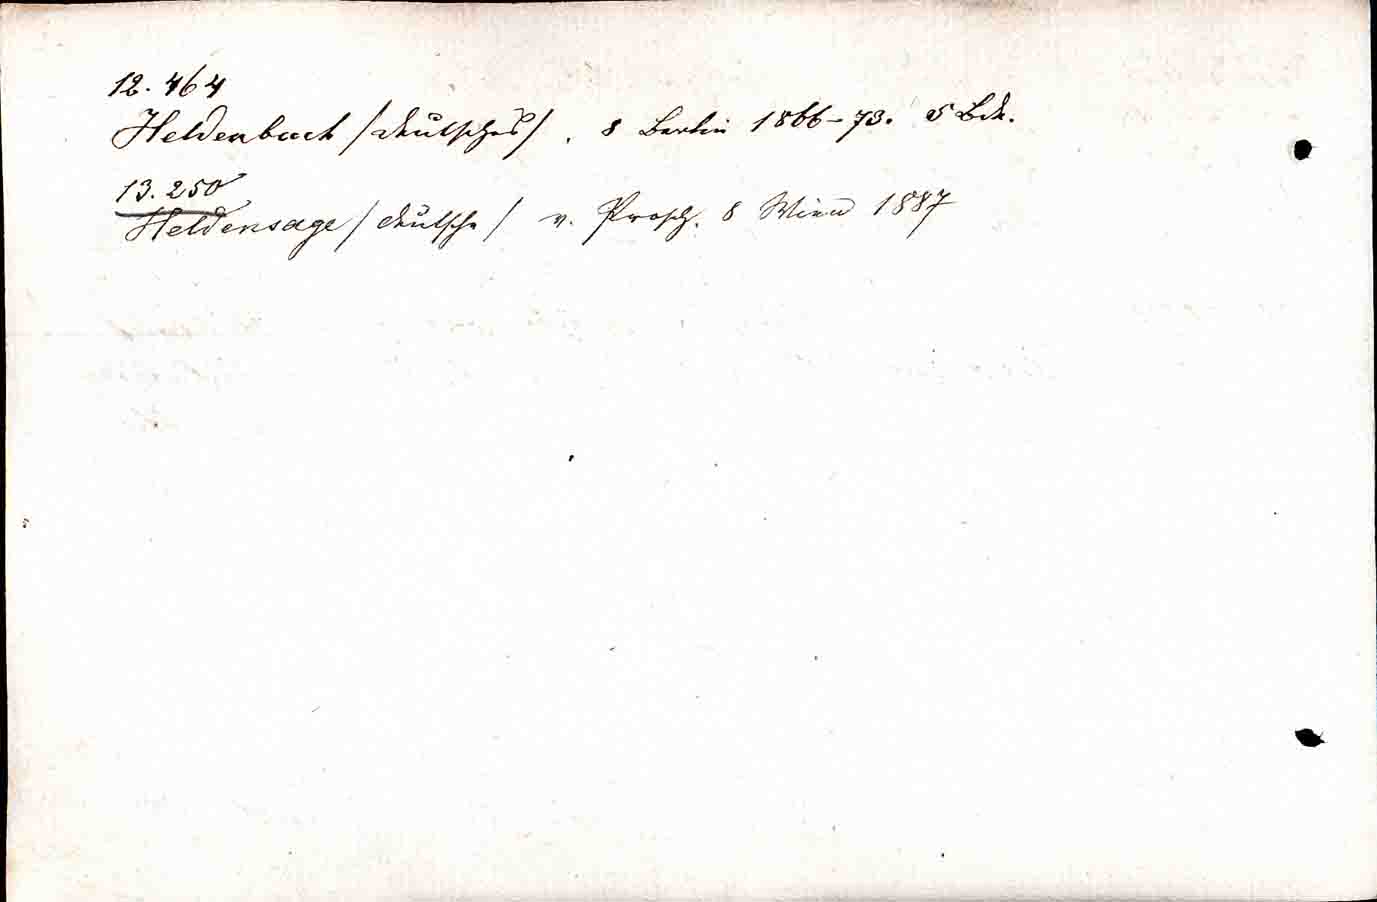 12.464
Heldenbuch /deutsches/. 8 Berlin 1866-73. 5 Bde.
13.250
Heldensage /deutsche/ v. Prosch. 8 Wien 1887